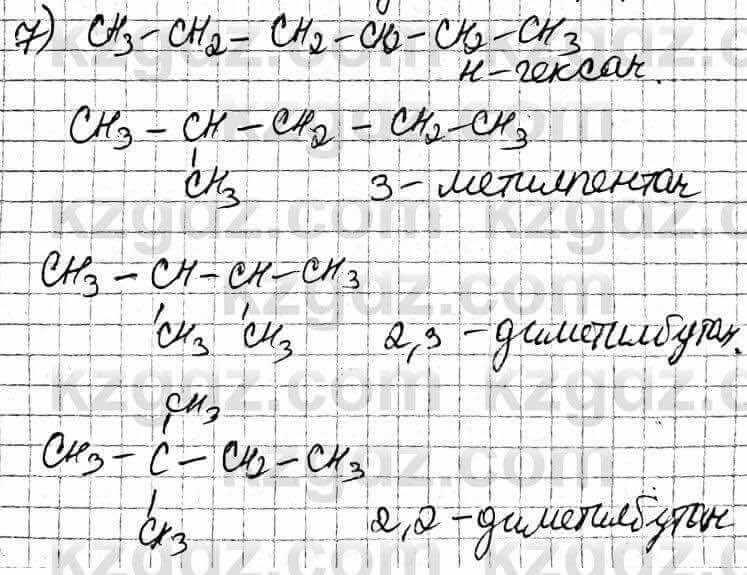 7) CH3-CH2-CH2-CH2-CH2-CH3
н-гексан.
CH3-CH-CH2-CH2-CH3
CH3 3-метилпентан
CH3-CH-CH-CH3
CH3 CH3 2,3-диметилбутан.
CH3
CH3-C-CH2-CH3
CH3 2,2-диметилбутан
kzgdz.com